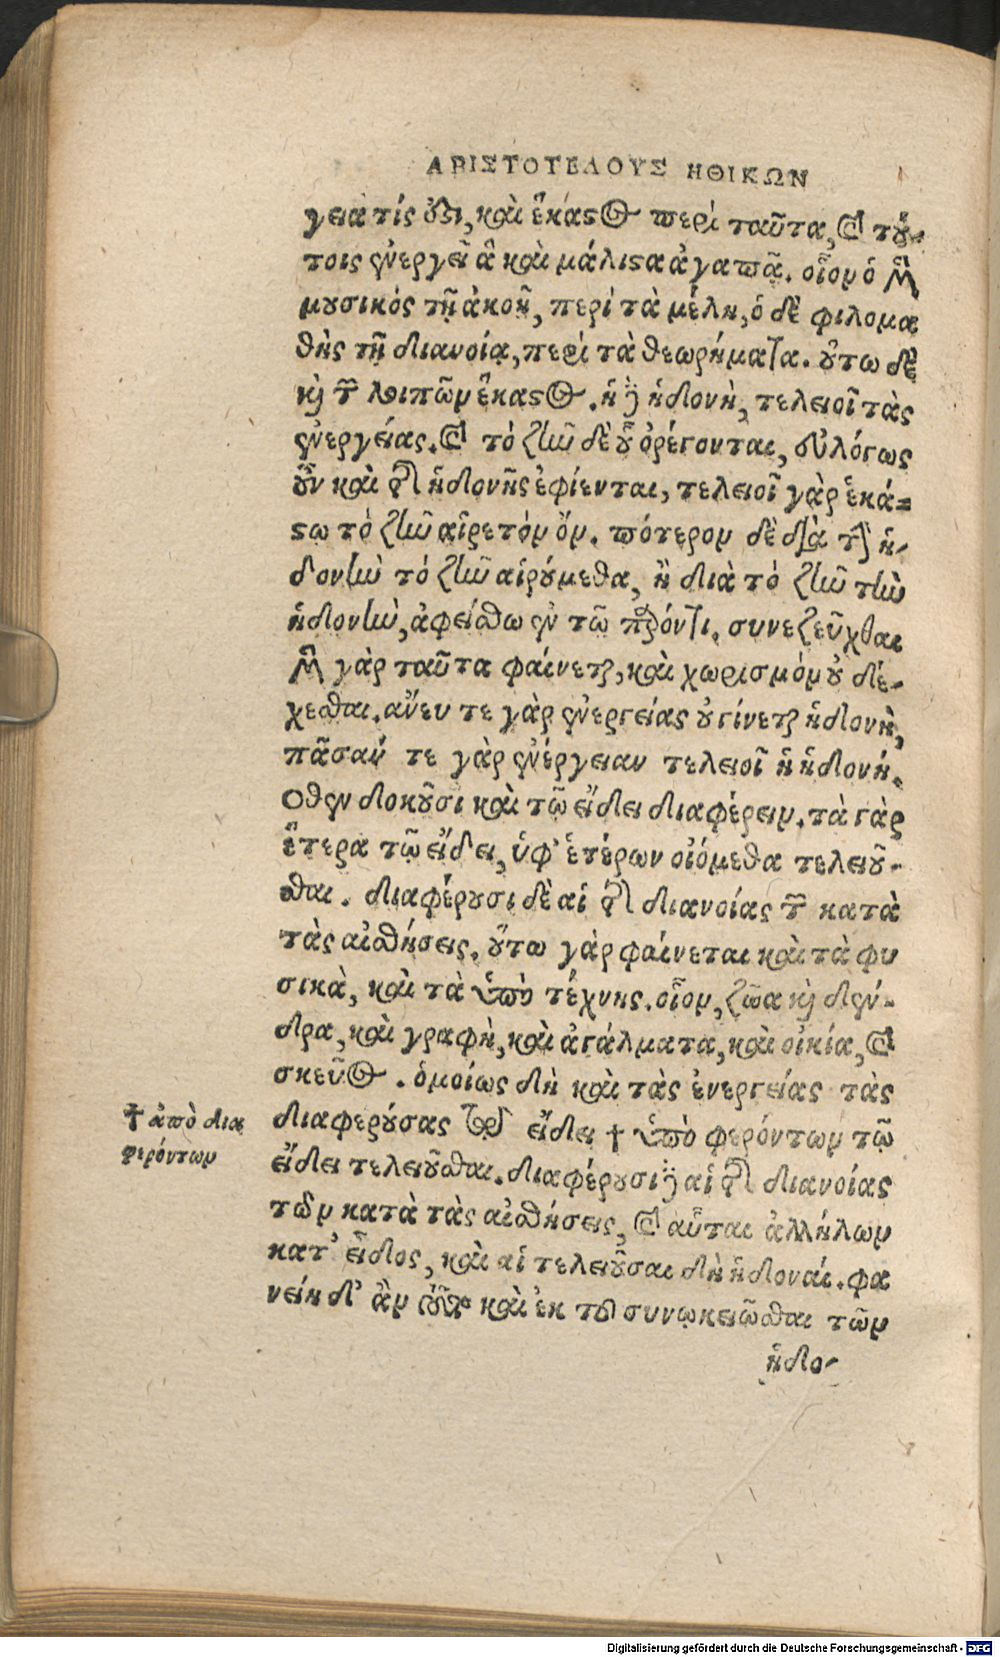 ΑΡΙΣΤΟΤΕΛΟΥΣ ΗΘΙΚΩΝ
γεια τίς ὅζι, καὶ ἕκαστος περὶ ταῦτα, καὶ τού-
τοις ἐνεργεῖ ἃ καὶ μάλιστα ἀγαπᾷ. οἷον ὁ μὲν
μουσικός τῇ ἀκοῇ, περὶ τὰ μέλη, ὁ δὲ φιλομα
θὴς τῇ διανοίᾳ, περὶ τὰ θεωρήματα. οὕτω δὲ
καὶ τῶν λοιπῶν ἕκαστος. ἡ δὲ ἡδονὴ, τελειοῖ τὰς
ἐνεργείας. καὶ τὸ ζῆν δὲ οὗ ὀρέγονται, εὐλόγως
οὖν καὶ τῆς ἡδονῆς ἐφίενται, τελειοῖ γὰρ ἑκά-
στῳ τὸ ζῆν αἱρετὸν ὄν. πότερον δὲ διὰ τὴν ἡ-
δονὴν τὸ ζῆν αἱρούμεθα, ἢ διὰ τὸ ζῆν τὴν
ἡδονὴν, ἀφείσθω ἐν τῷ παρόντι. συνεζεῦχθαι
μὲν γὰρ ταῦτα φαίνεται, καὶ χωρισμὸν οὐ δέ-
χεσθαι. ἄνευ τε γὰρ ἐνεργείας οὐ γίνεται ἡδονὴ,
πᾶσαν τε γὰρ ἐνέργειαν τελειοῖ ἡ ἡδονή.
Οθεν δοκοῦσι καὶ τῷ εἴδει διαφέρειν. τὰ γὰρ
ἕτερα τῷ εἴδει, ὑφ' ἑτέρων οἰόμεθα τελειοῦ-
σθαι. διαφέρουσι δὲ αἱ τῆς διανοίας τῶν κατὰ
τὰς αἰσθήσεις. οὕτω γὰρ φαίνεται καὶ τὰ φυ
σικὰ, καὶ τὰ ὑπὸ τέχνης. οἷον, ζῶα καὶ δέν-
δρα, καὶ γραφὴ, καὶ ἀγάλματα, καὶ οἰκία, καὶ
σκεῦος. ὁμοίως δὴ καὶ τὰς ἐνεργείας τὰς
διαφερούσας τῷ εἴδει † ὑπὸ φερόντων τῷ
εἴδει τελειοῦσθαι. διαφέρουσι δὲ αἱ τῆς διανοίας
τῶν κατὰ τὰς αἰσθήσεις, καὶ αὗται ἀλλήλων
κατ' εἶδος, καὶ αἱ τελειοῦσαι δὴ ἡδοναί. φα
νείη δ' ἂν τοῦτο καὶ ἐκ τοῦ συνῳκειῶσθαι τῶν
ἡδο-
† ἀπὸ δια
φερόντων
Digitalisierung gefördert durch die Deutsche Forschungsgemeinschaft - DFG